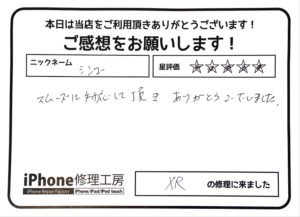 本日は当店をご利用頂きありがとうございます!
ご感想をお願いします!
ニックネーム
シンゴー
星評価
☆☆☆☆☆
スムーズに対応して頂き ありがとうございました。
iPhone修理工房
iPhone Repair Factory
iPhone/iPad/iPod touch
XR の修理に来ました